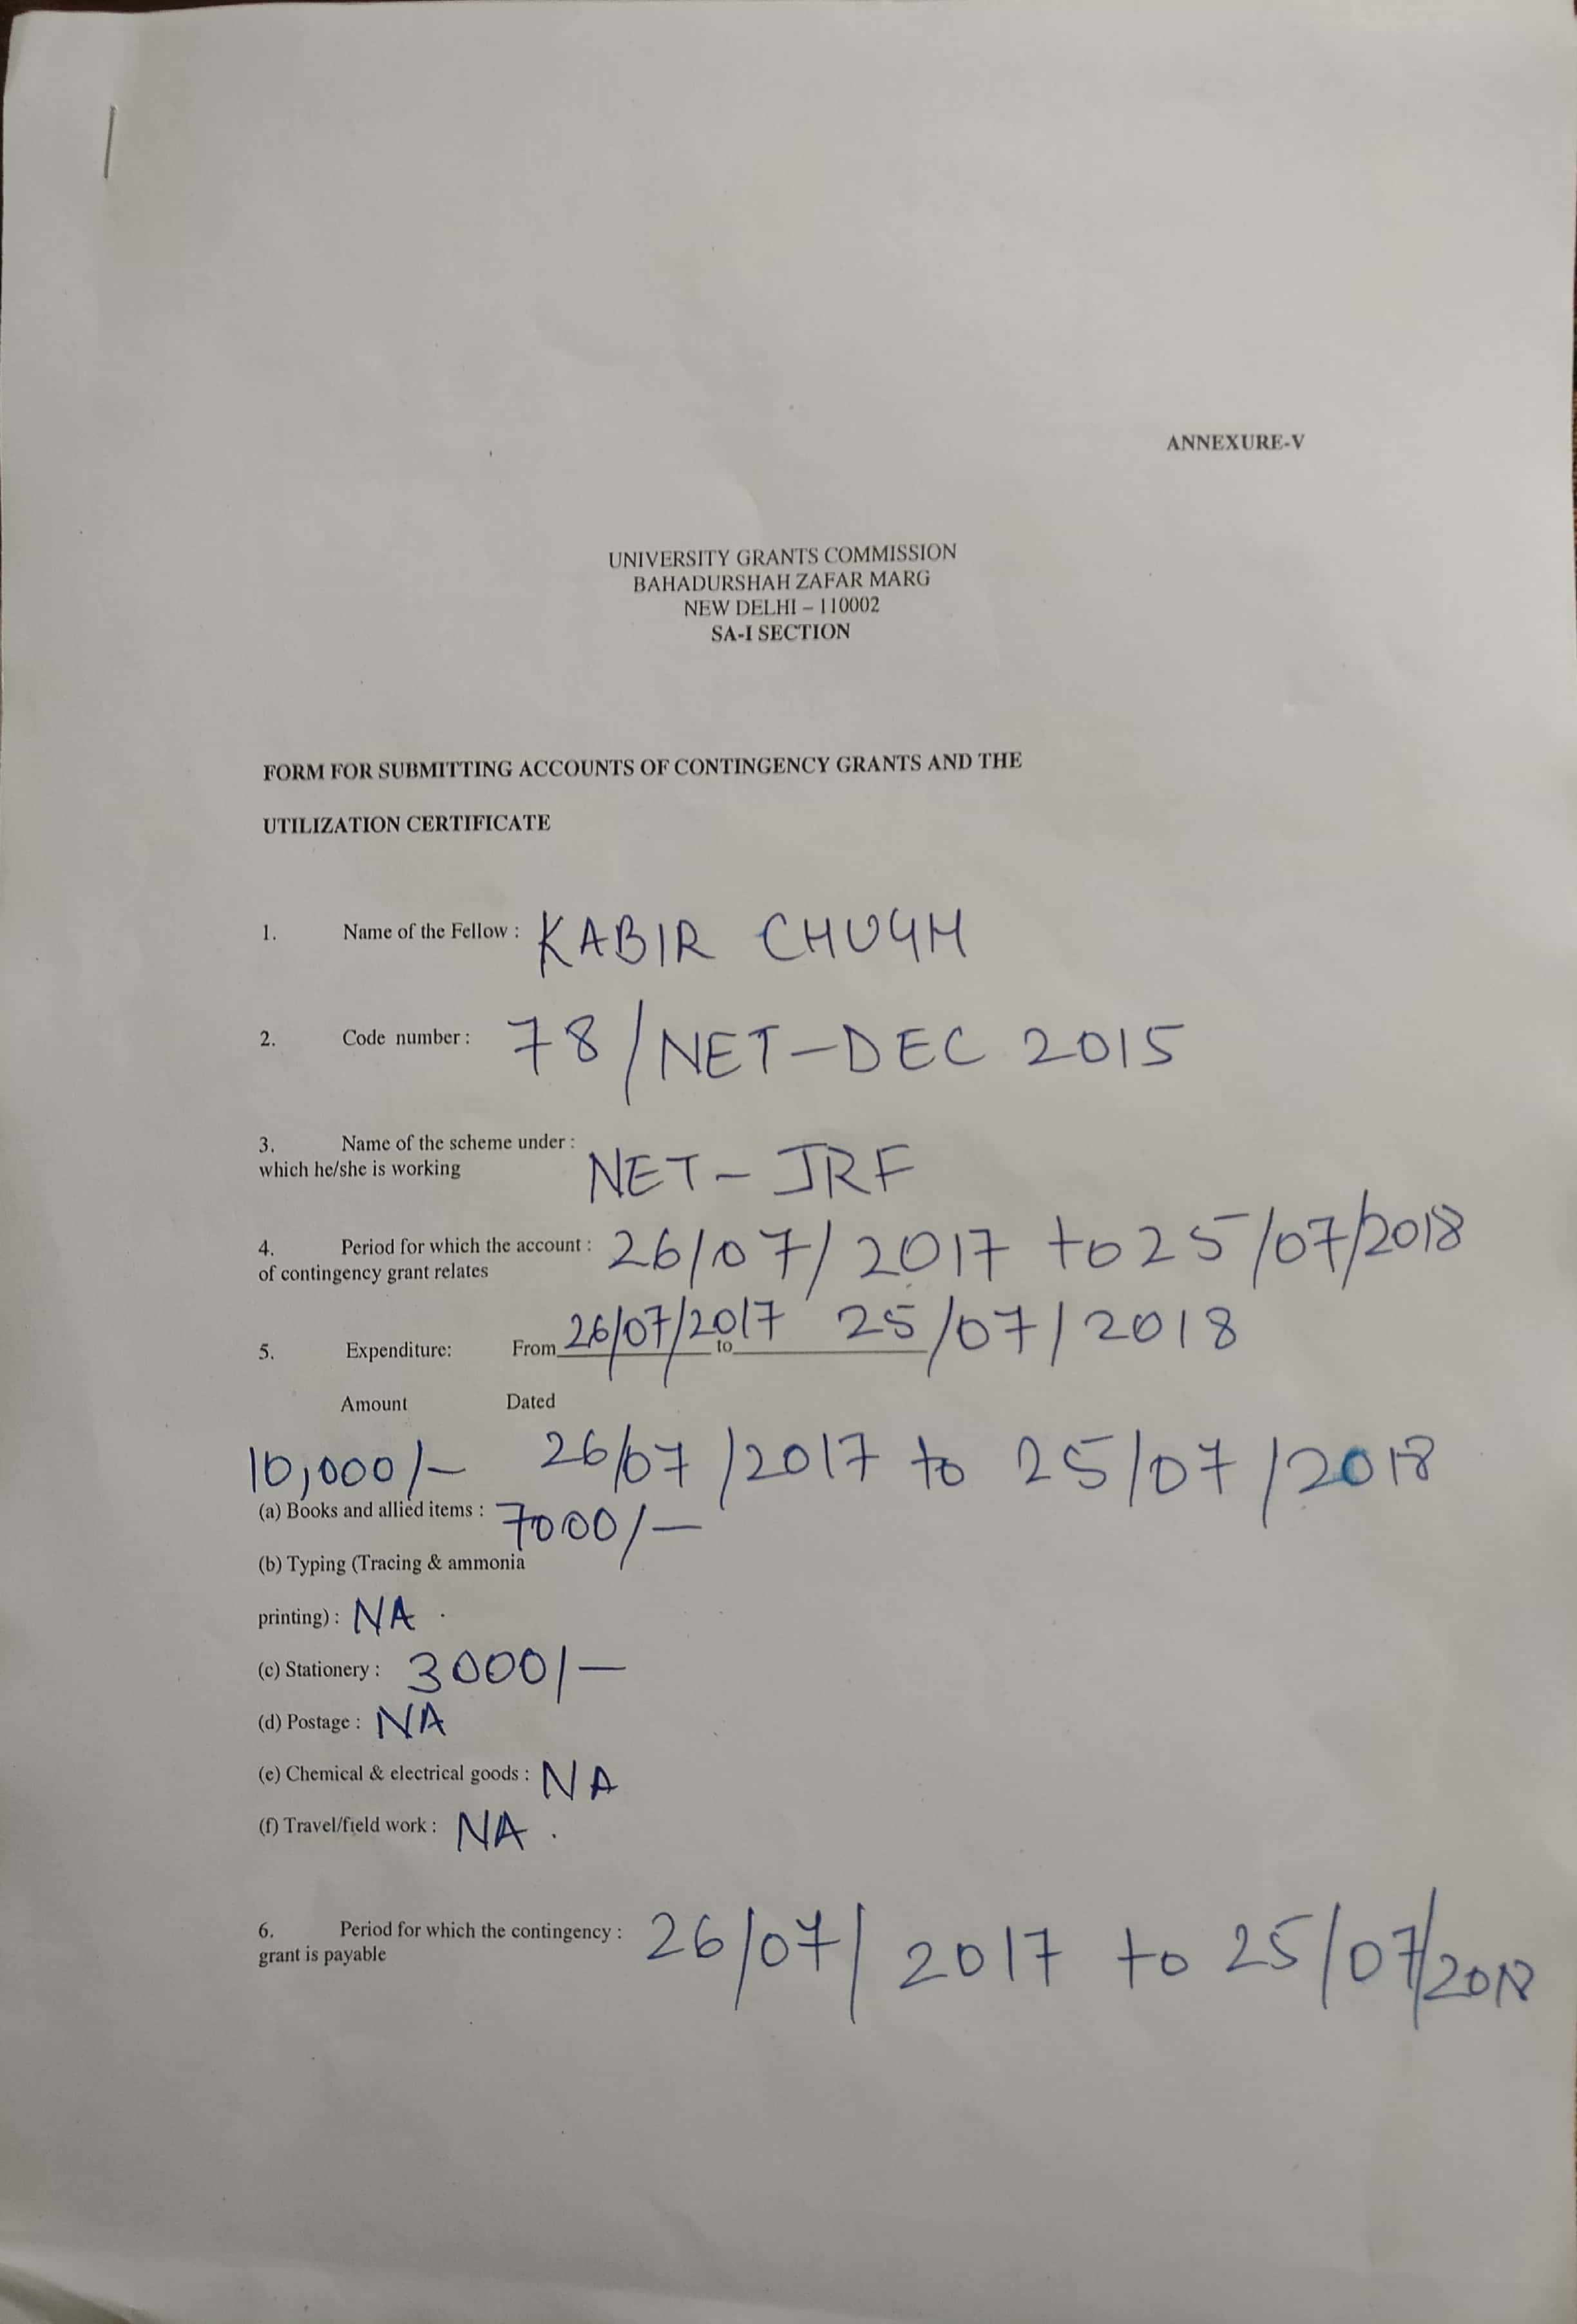 ANNEXURE-V
UNIVERSITY GRANTS COMMISSION
BAHADURSHAH ZAFAR MARG
NEW DELHI – 110002
SA-I SECTION
FORM FOR SUBMITTING ACCOUNTS OF CONTINGENCY GRANTS AND THE
UTILIZATION CERTIFICATE
1. Name of the Fellow : KABIR CHUGH
2. Code number : 78/NET-DEC 2015
3. Name of the scheme under :
which he/she is working NET - JRF
4. Period for which the account : 26/07/2017 to 25/07/2018
of contingency grant relates
5. Expenditure: From 26/07/2017 to 25/07/2018
Amount Dated
10,000/- 26/07/2017 to 25/07/2018
(a) Books and allied items : 7000/-
(b) Typing (Tracing & ammonia
printing) : NA
(c) Stationery : 3000/-
(d) Postage : NA
(e) Chemical & electrical goods : NA
(f) Travel/field work : NA .
6. Period for which the contingency : 26/07/2017 to 25/07/2018
grant is payable